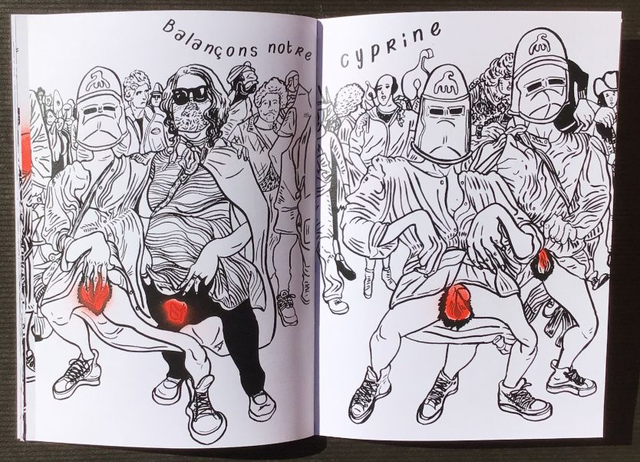 Balançons notre
cyprine